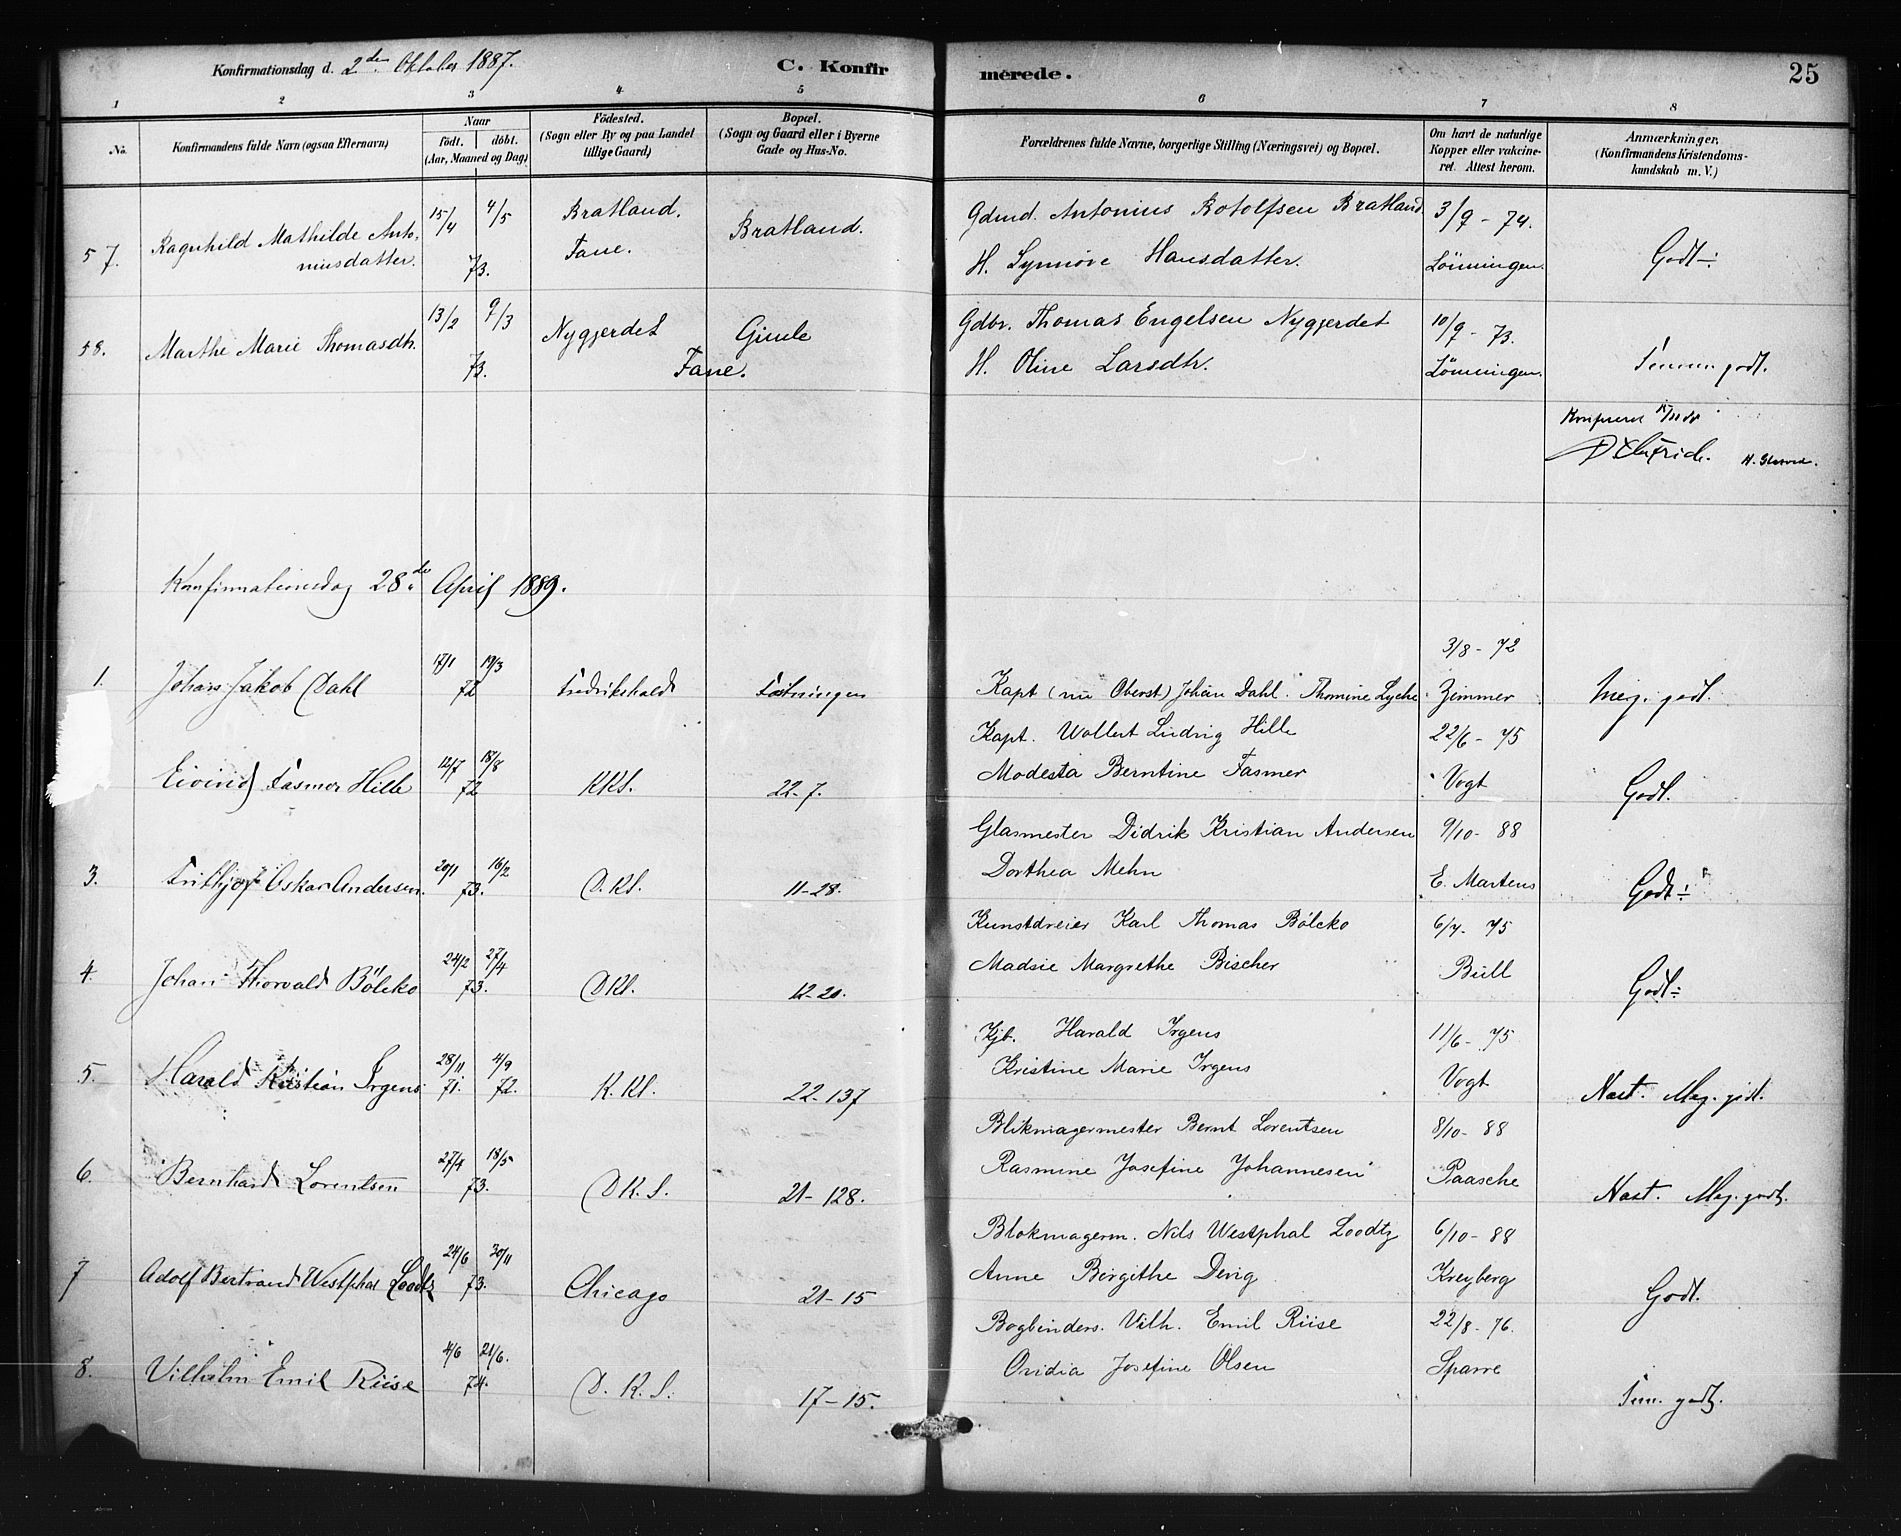 Konfirmationsdag d. 2den Oktober 1887.
C. Konfirmerede.
25
1 2 3 4 5 6 7 8
No.
Konfirmandens fulde Navn (ogsaa Efternavn)
Naar
födt. döbt.
(Aar, Maaned og Dag)
Födested.
(Sogn eller By og paa Landet
tillige Gaard)
Bopæl.
(Sogn og Gaard eller i Byerne
Gade og Hus-No.
Forældrenes fulde Navne, borgerlige Stilling (Næringsvei) og Bopæl.
Om havt de naturlige
Kopper eller vakcine-
ret. Attest herom.
Anmærkninger,
(Konfirmandens Kristendoms-
kundskab m. V.)
57. Ragnhild Mathilde Anto-
niusdatter.
15/4 4/5
73.
Bratland.
Fane.
Bratland.
Gdmd. Antonius Botolfsen Bratland
H. Synnöve Hansdatter.
3/9 - 74.
Lönningen.
Godt ÷
58. Marthe Marie Thomasdtr.
13/2 9/3
73.
Nygjerdet
Gimle
Fane.
Gdbr. Thomas Engelsen Nygjerdet
H. Oline Larsdtr.
10/9 - 73.
Lönningen.
Temm. godt.
Konfirmationsdag 28de April 1889.
1. Johan Jakob Dahl
17/1 19/3
72
Fredrikshald
Fæstningen
Kapt (nu Oberst) Johan Dahl. Thomine Lyche
3/8 - 72
Zimmer
Meg. godt.
Eivind Fasmer Hille
12/7 18/8
72
KKS.
22-7.
Kapt. Wollert Ludvig Hille
Modesta Berntine Fasmer
22/6 - 75
Vogt
Godt.
3. Frithjof Oskar Andersen.
20/1 16/2
73.
D.KS.
11-28.
Glasmester Didrik Kristian Andersen
Dorthea Mehn
9/10 - 88
E. Martens
Godt ÷
4. Johan Thorvald Bölcko
24/2 27/4
73.
DKS.
12-20.
Kunstdreier Karl Thomas Bölcko
Madsie Margrethe Bischer
6/7 - 75
Bull
Godt ÷
5. Harald Kristian Irgens
28/11 4/9
71. 72.
K.KS.
22-137
Kjb. Harald Irgens
Kristine Marie Irgens
11/6 - 75
Vogt
Næst. Meg. godt.
6. Bernhard Lorentsen
27/4 18/5
73.
DK.S.
21-128.
Blikmagermester Bernt Lorentsen
Rasmine Josefine Johannesen
8/10 - 88
Paasche
Næst. Meg. godt.
7 Adolf Bertrand Westphal Loodtz
24/6 30/11
73.
Chicago
21-15
Blokmagerm. Nils Westphal Loodtz
Anne Birgithe Devig
6/10 - 88
Kreyberg
Godt.
8. Vilhelm Emil Riise
4/6 21/6.
74.
D.K.S.
17-15.
Bogbinders. Vilh. Emil Riise
Ovidia Josefine Olsen
22/8 - 76.
Sparre
Tem. godt.